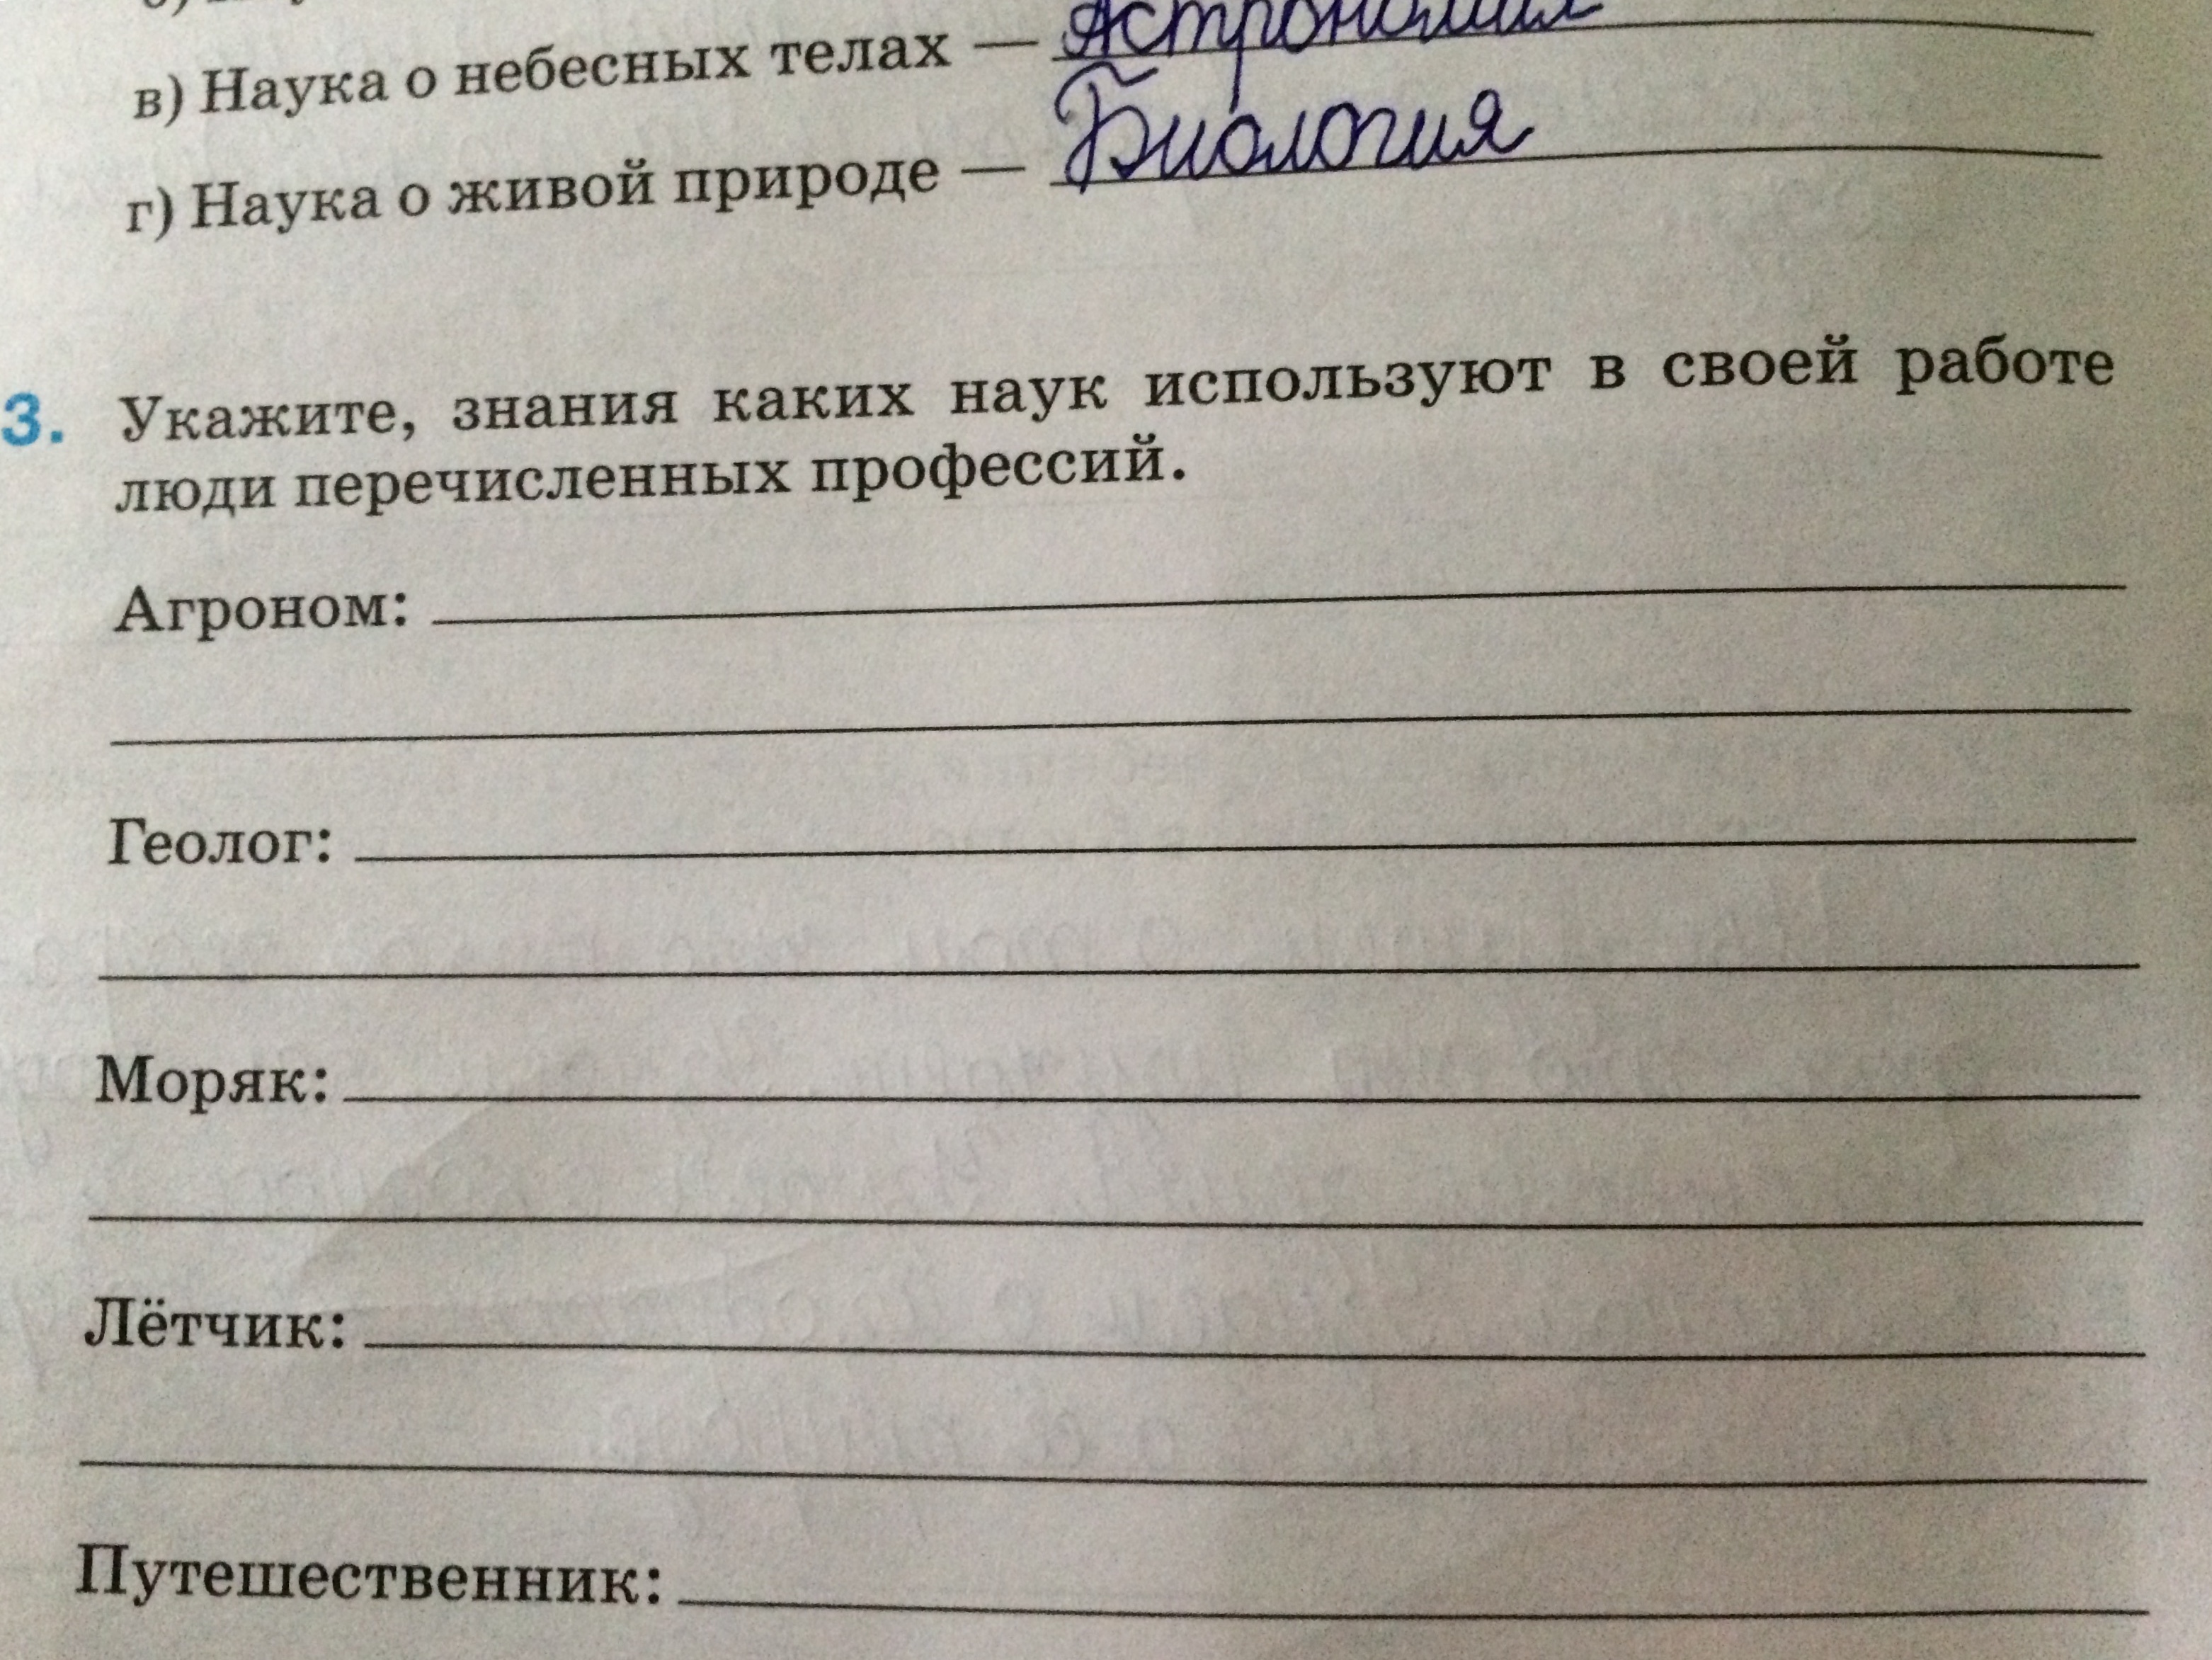 в) Наука о небесных телах — Астрономия
г) Наука о живой природе — Биология
3. Укажите, знания каких наук используют в своей работе
люди перечисленных профессий.
Агроном:
Геолог:
Моряк:
Лётчик:
Путешественник: